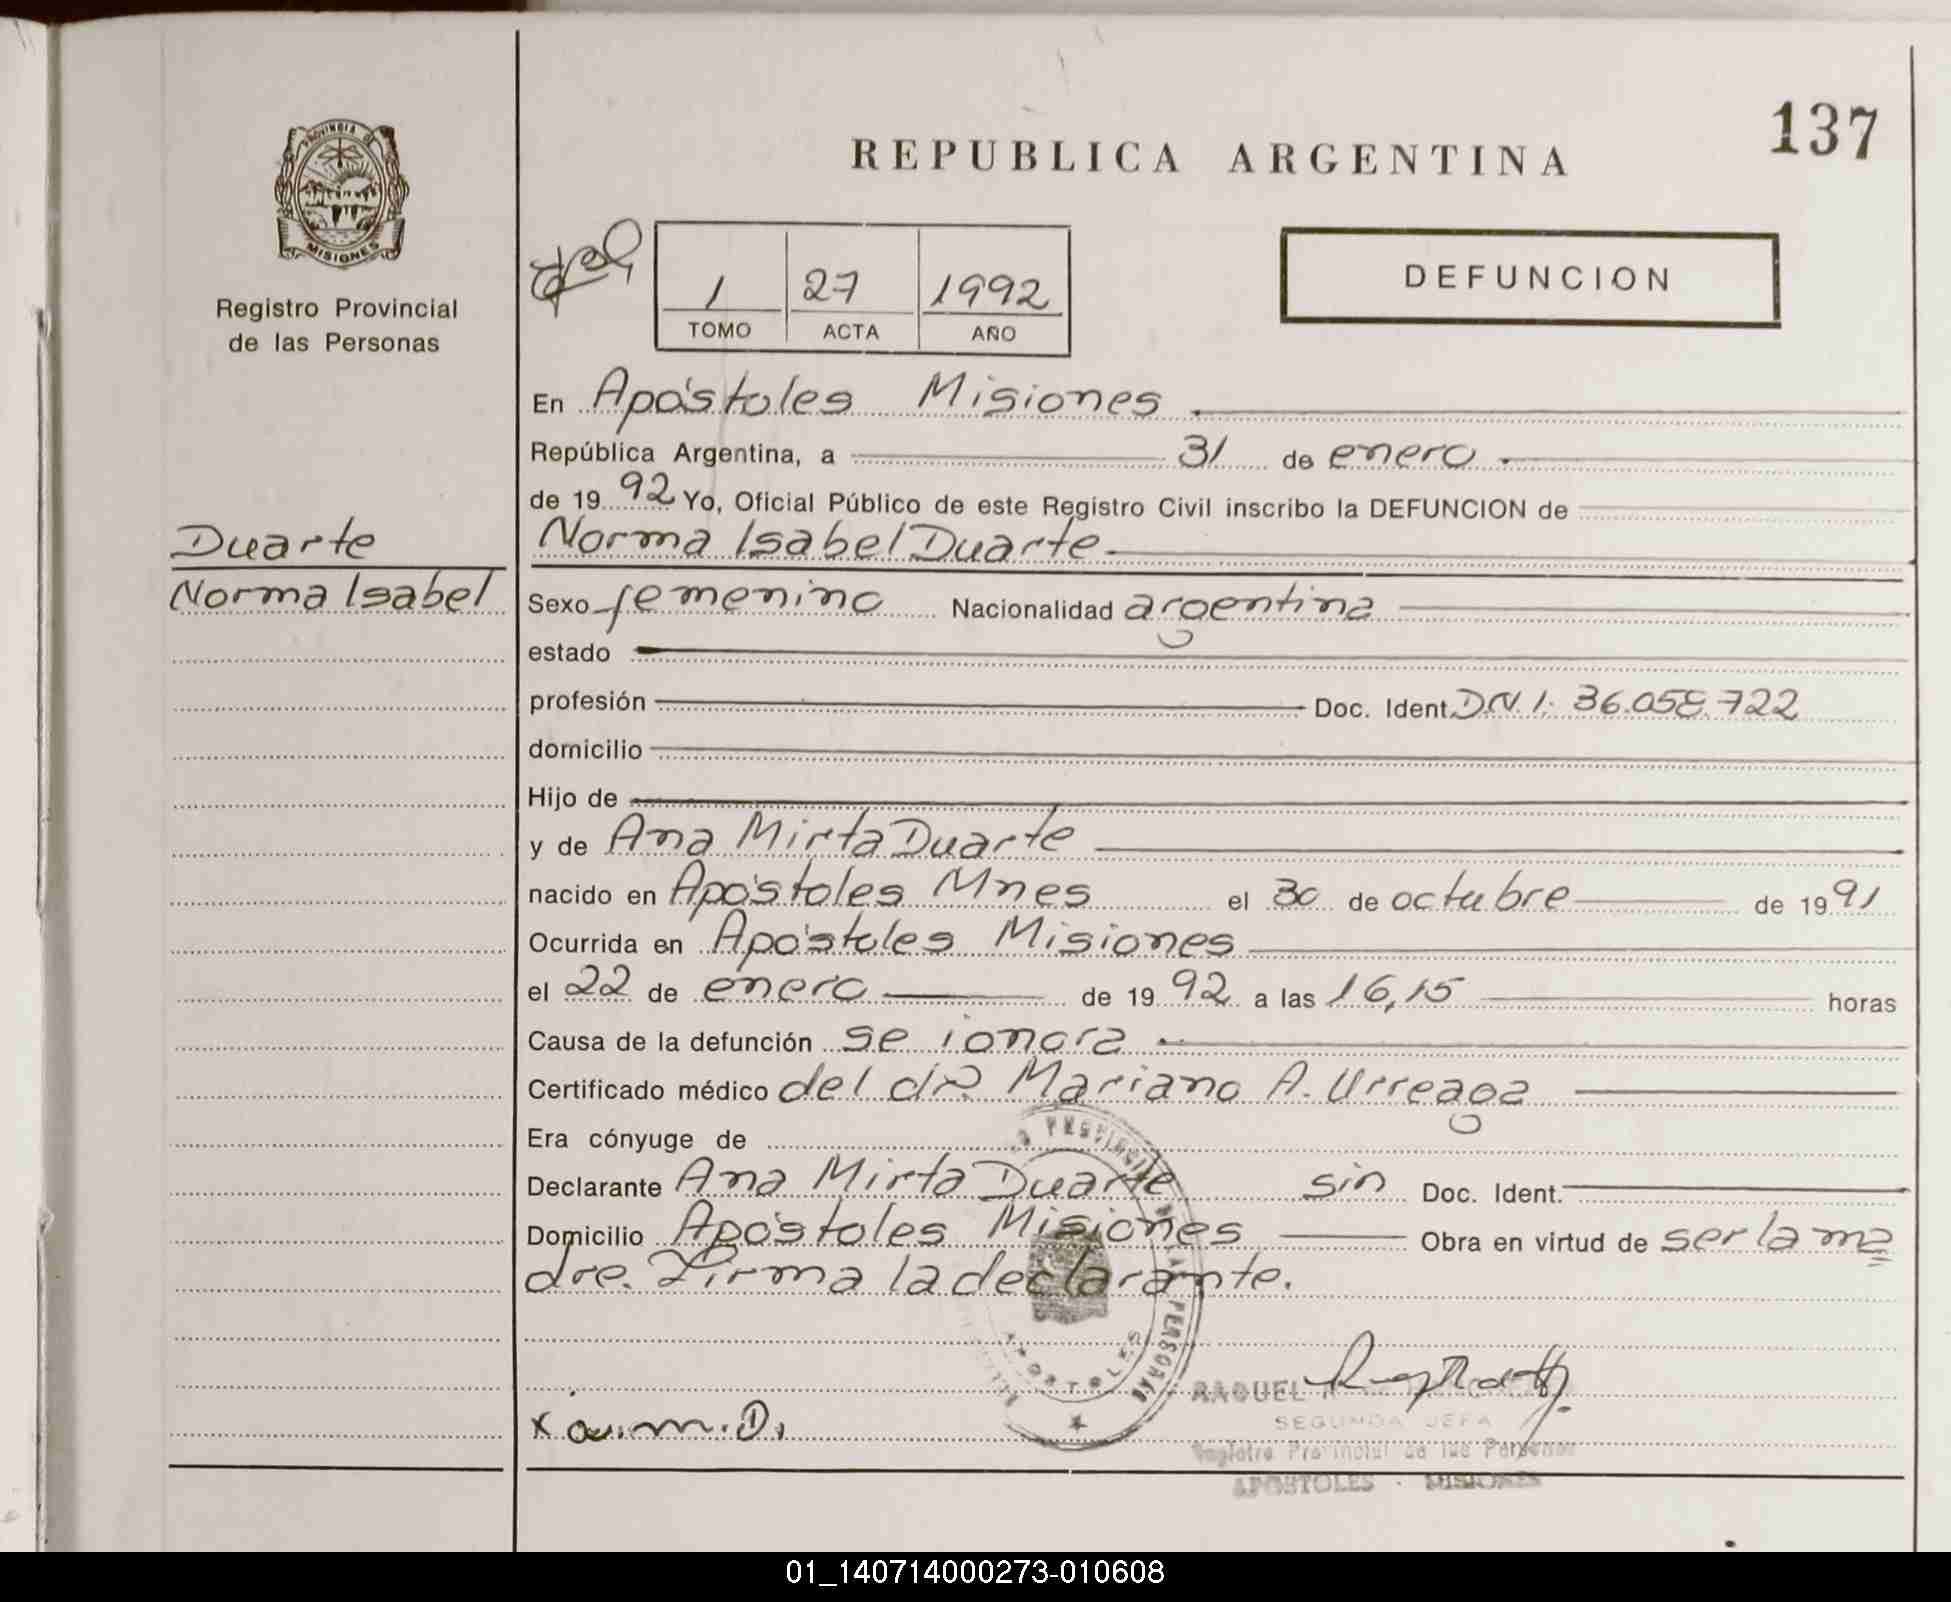 137
REPUBLICA ARGENTINA
PROVINCIA DE
MISIONES
Registro Provincial
de las Personas
1 27 1992
TOMO ACTA AÑO
DEFUNCION
En Apóstoles Misiones
República Argentina, a 31 de enero
de 1992 Yo, Oficial Público de este Registro Civil inscribo la DEFUNCION de
Duarte
Norma Isabel
Norma Isabel Duarte
Sexo femenino Nacionalidad argentina
estado
profesión Doc. Ident. D.N.I. 36.058.722
domicilio
Hijo de
y de Ana Mirta Duarte
nacido en Apóstoles Mnes el 30 de octubre de 1991
Ocurrida en Apóstoles Misiones
el 22 de enero de 1992 a las 16,15 horas
Causa de la defunción se ignora
Certificado médico del dr. Mariano A. Urreaga
Era cónyuge de
Declarante Ana Mirta Duarte sin Doc. Ident.
Domicilio Apóstoles Misiones Obra en virtud de ser la ma
dre. Firma la declarante.
PROVINCIAL
PERSONAS
APOSTOLES
RAQUEL
SEGUNDA JEFA
Registro Provincial de las Personas
APOSTOLES - MISIONES
x a.m.D.
01_140714000273-010608